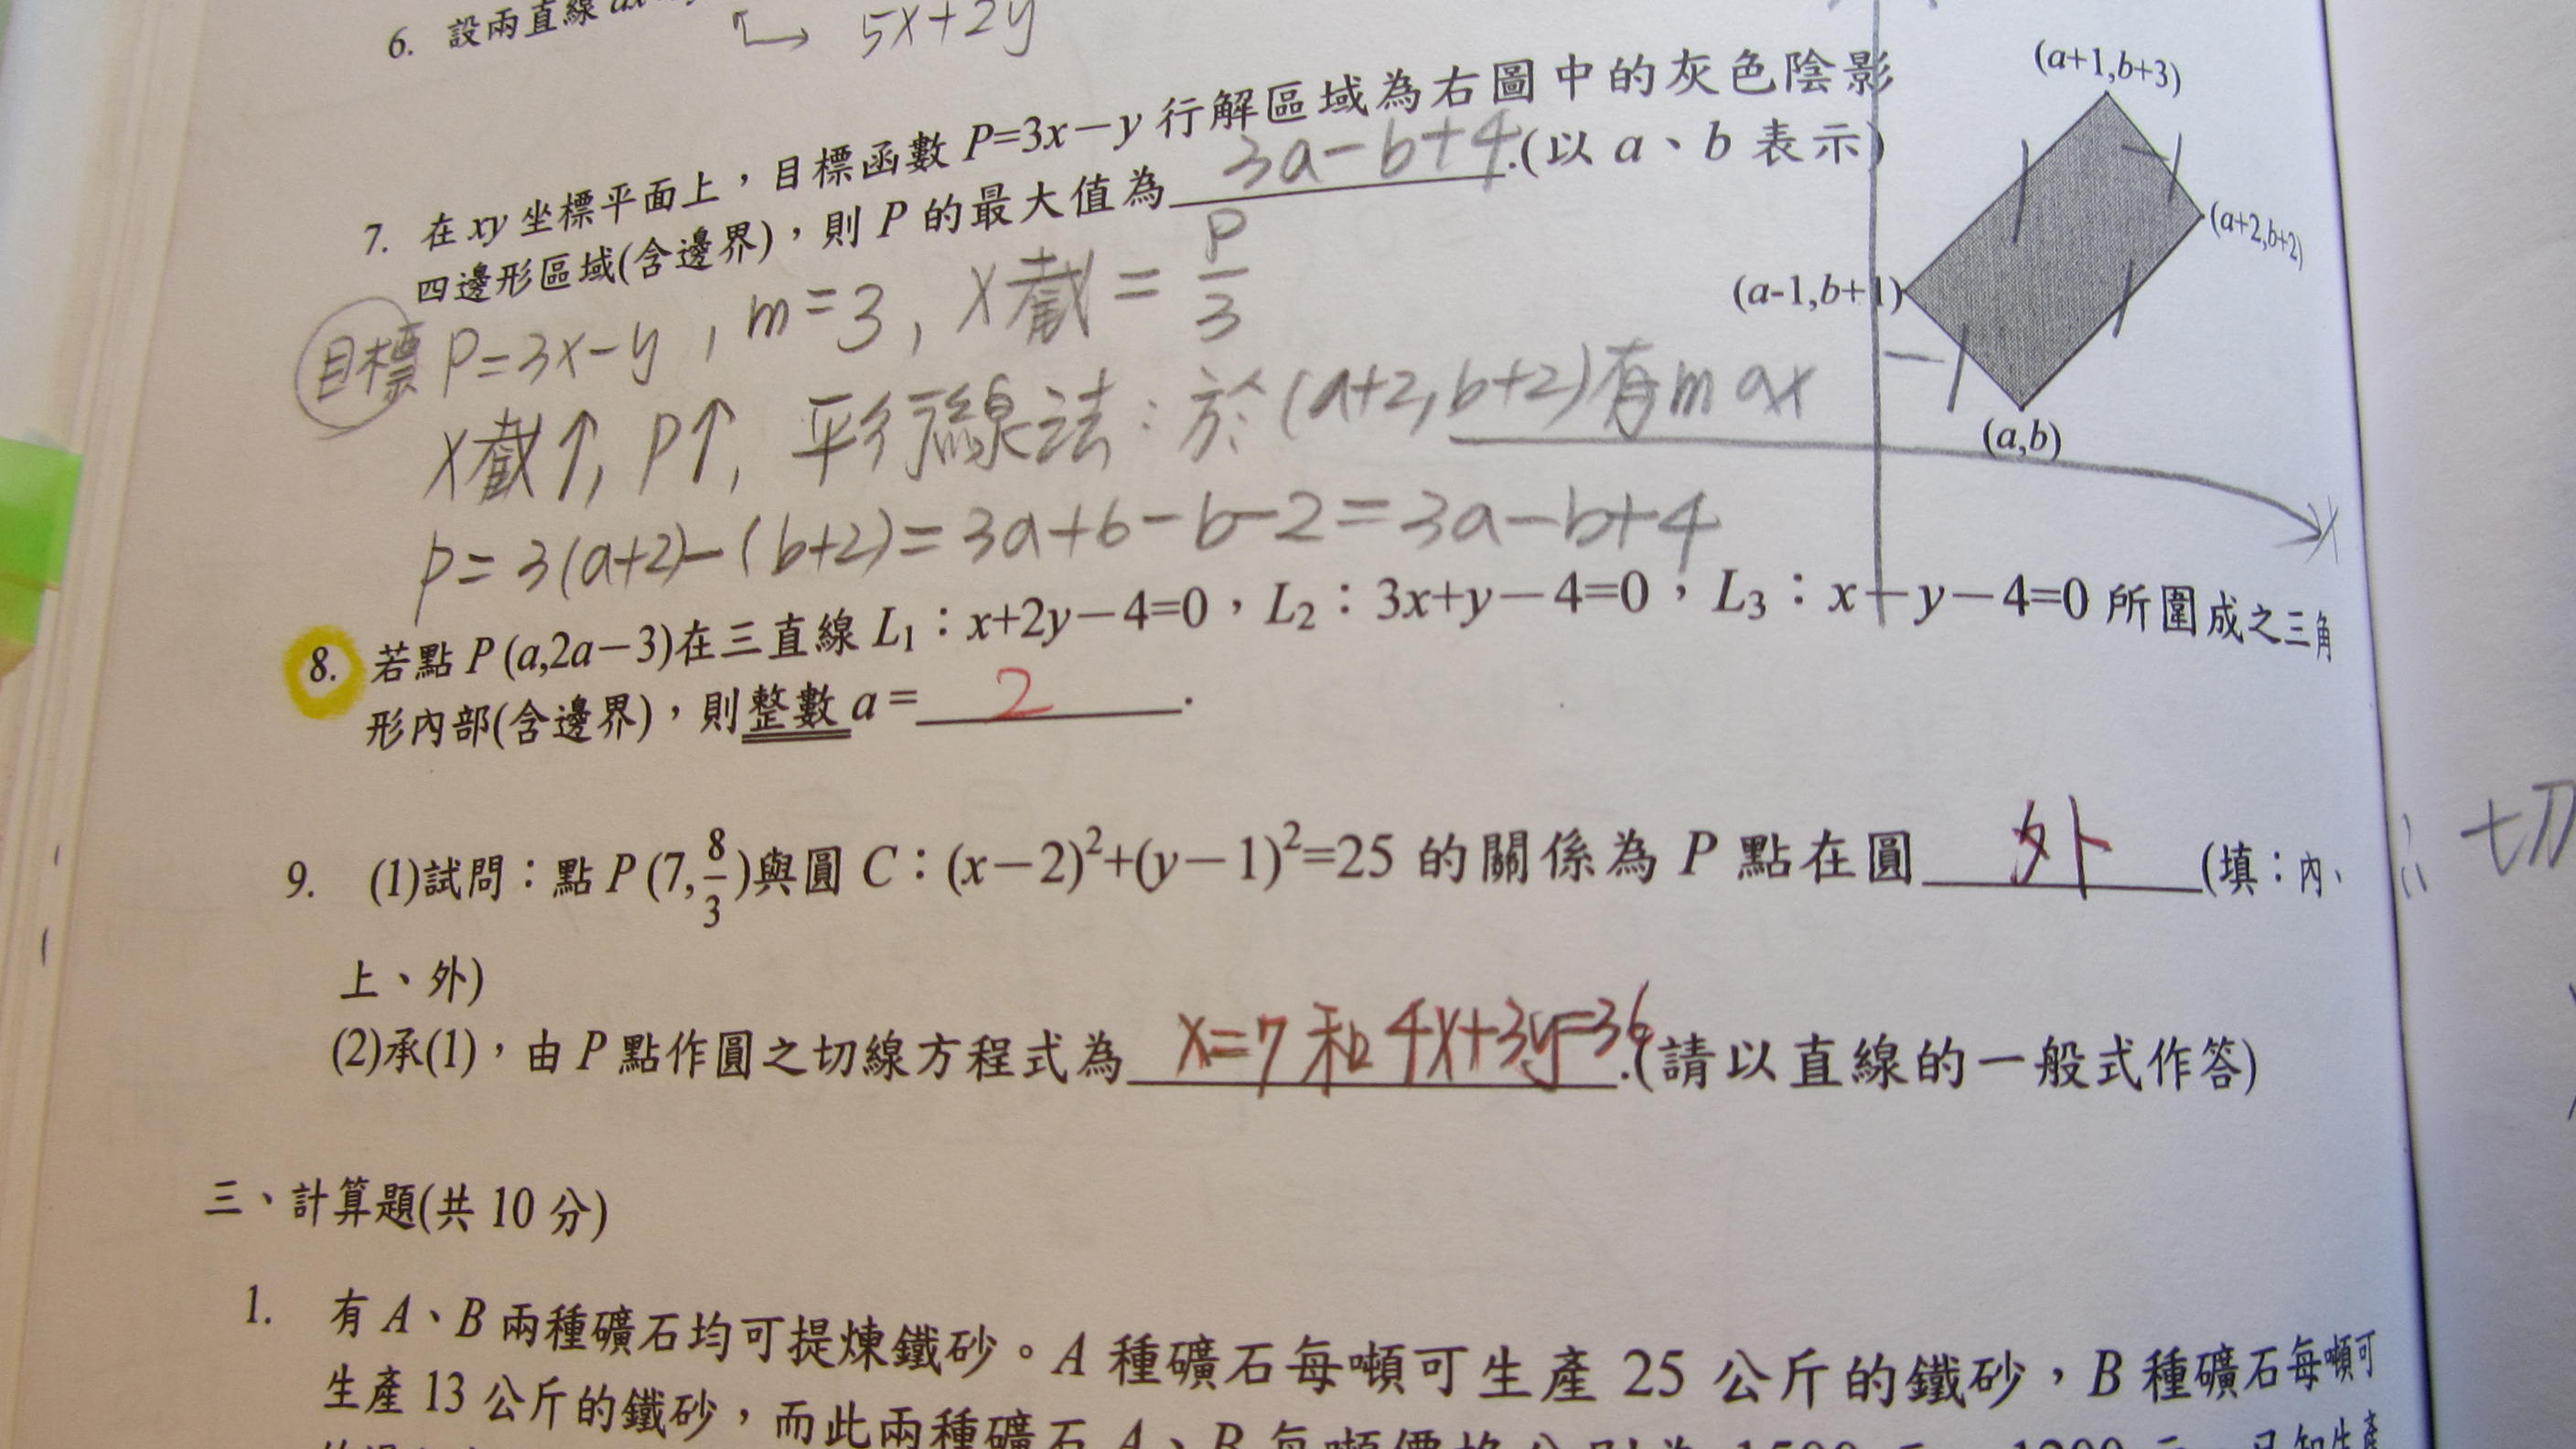 6. 設兩直線
5x+2y
7. 在 xy 坐標平面上，目標函數 P=3x－y 行解區域為右圖中的灰色陰影
四邊形區域(含邊界)，則 P 的最大值為 3a－b+4.(以 a、b 表示)
(a+1,b+3)
(a+2,b+2)
(a-1,b+1)
(a,b)
x
目標 P=3x－y , m=3, x截=P/3
x截↑, P↑, 平行線法：於(a+2,b+2)有max
P=3(a+2)－(b+2)=3a+6－b－2=3a－b+4
8. 若點 P (a,2a－3)在三直線 L₁：x+2y－4=0，L₂：3x+y－4=0，L₃：x－y－4=0 所圍成之三角
形內部(含邊界)，則整數 a= 2 .
9. (1)試問：點 P (7,8/3)與圓 C：(x－2)²+(y－1)²=25 的關係為 P 點在圓 外 (填：內、
∴切
上、外)
(2)承(1)，由 P 點作圓之切線方程式為 x=7 和 4x+3y=36 .(請以直線的一般式作答)
三、計算題(共 10 分)
1. 有 A、B 兩種礦石均可提煉鐵砂。A 種礦石每噸可生產 25 公斤的鐵砂，B 種礦石每噸可
生產 13 公斤的鐵砂，而此兩種礦石 A、B 每噸價格分別為 1500 元、1200 元，已知生產